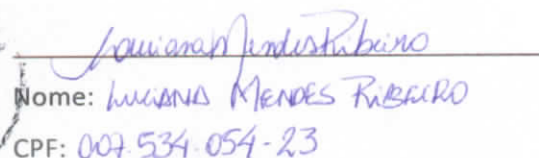 Luciana Mendes Ribeiro
Nome: LUCIANA MENDES RIBEIRO
CPF: 007.534.054-23